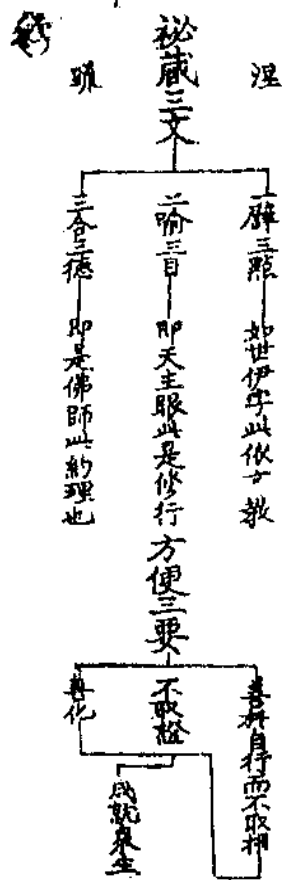 涅
秘藏三文
疏
一譬三點 如世伊字此依文教
二喻三目 即天主眼此是修行
三合三德 即是佛師此約理也
方便三要
善權自行而不取相
不取證
善化
成就眾生